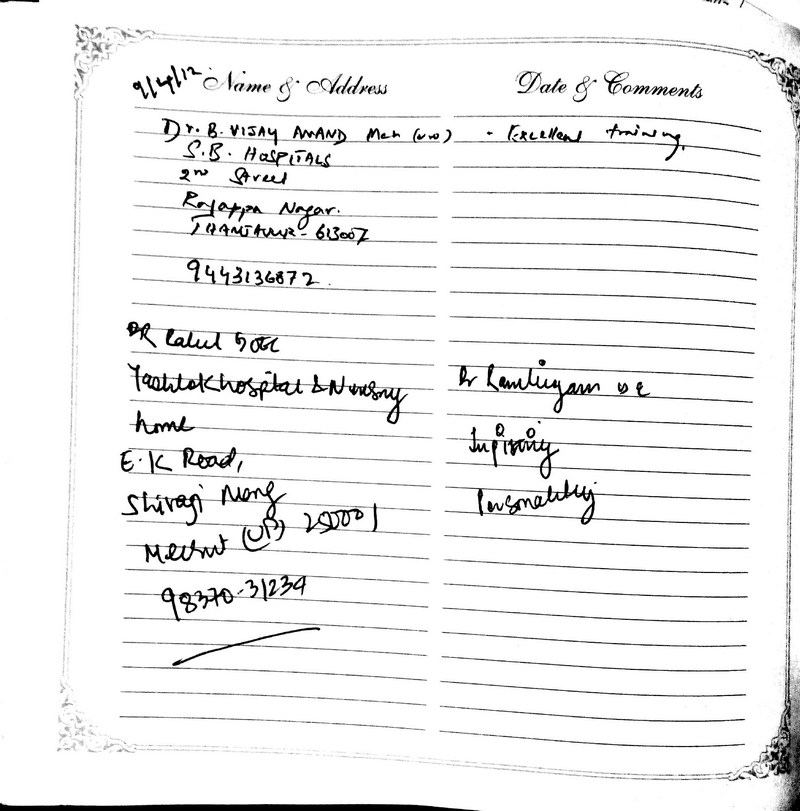 9/4/12 Name & Address Date & Comments
Dr. B. VIJAY ANAND Mch (uro) - Excellent training.
S.B. HOSPITALS
2nd Street
Rajappa Nagar.
THANJAVUR - 613007
9443136872.
DR Rahul
Yashlok hospital & Nursing Dr Ramlingam is a
home
Inspiring
E.K Road,
Shivaji Marg Personality
Meerut (UP) 250001
98370-31234